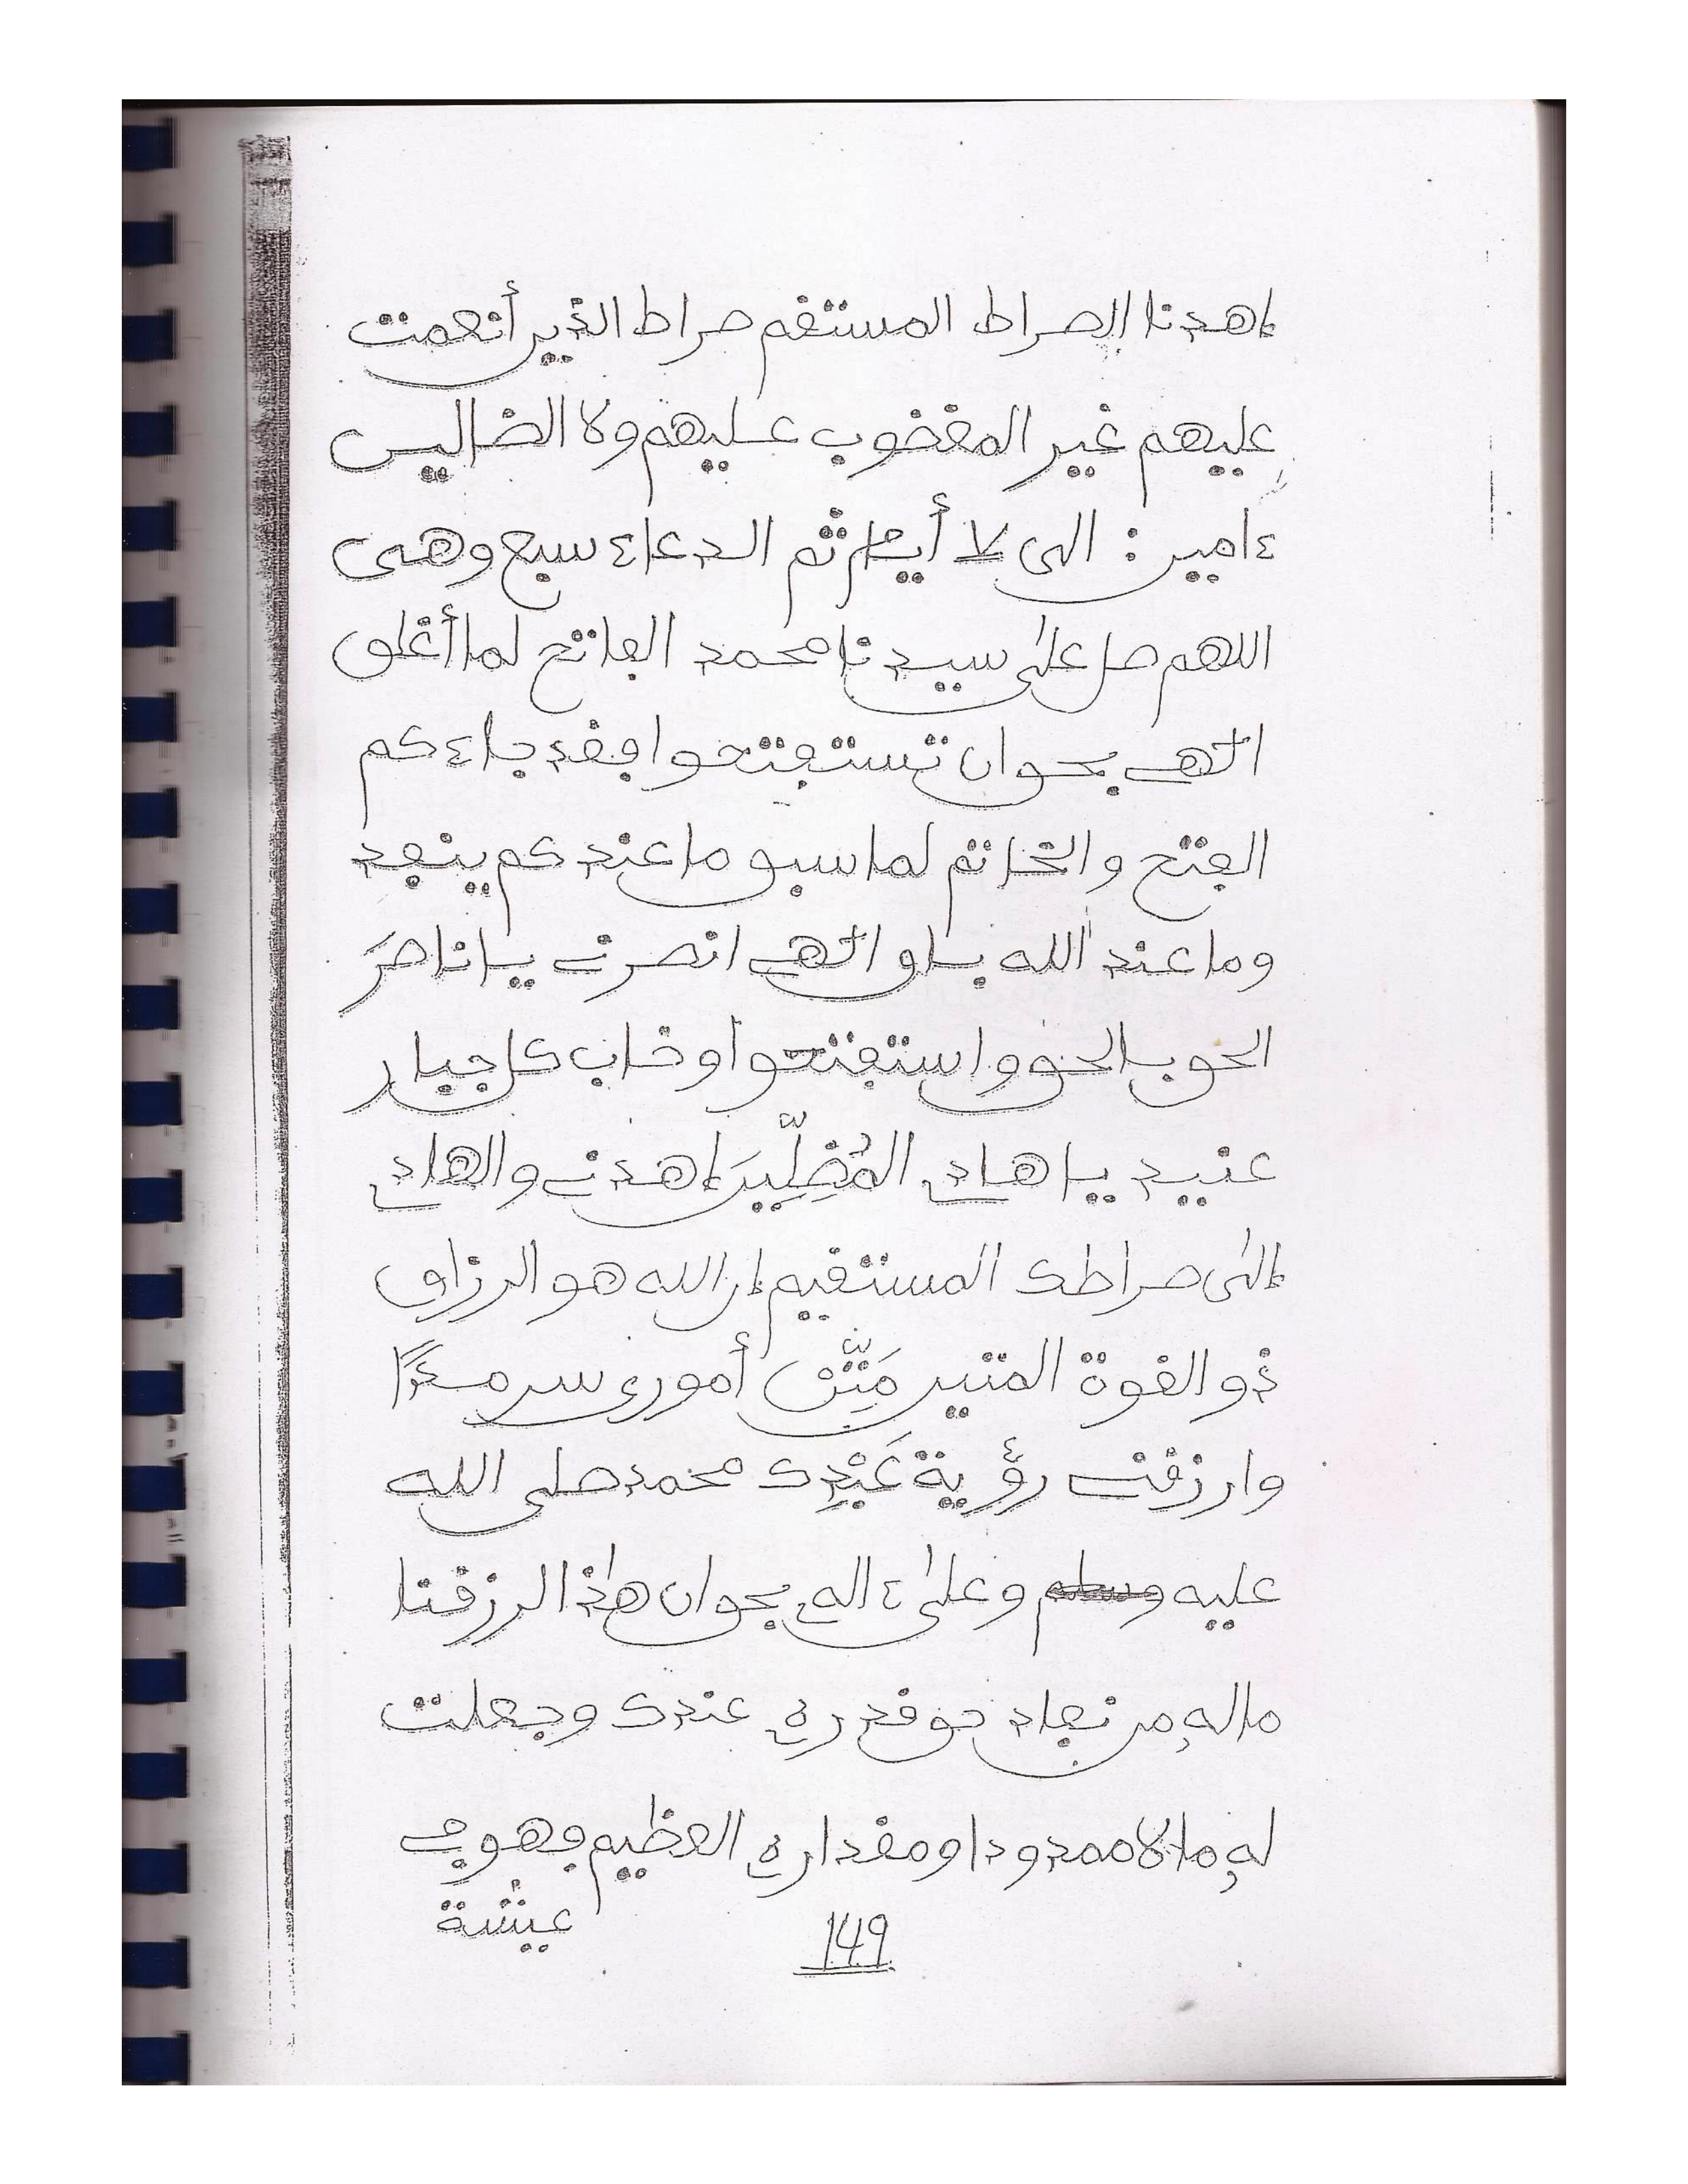 إهدنا الصراط المستقم صراط الذين أنعمت
عليهم غير المغضوب عليهم ولا الضالين
ءامين : الى لا أيام ثم الدعاء سبع وهى
اللهم صل على سيدنا محمد الفاتح لما أغلق
الهي بحق ان تستفتحوا فقد جاءكم
الفتح والخاتم لما سبق ما عندكم ينفد
وما عند الله باق الهي انصرني يا ناصرَ
الحق بالحق واستفتحوا وخاب كل جبار
عنيد يا هادي المُضِلِّينَ إهدني والهادي
إلى صراطك المستقيم إن الله هو الرزاق
ذو القوة المتين مَتِّن أموري سرمدًا
وارزقني رؤية عَبْدِك محمد صلى الله
عليه وعلى ءاله بحق ان هذا لرزقنا
ماله من نفاد حق قدره عندك وجعلت
له مالا ممدودا ومقداره العظيم فهو في
عيشة
149